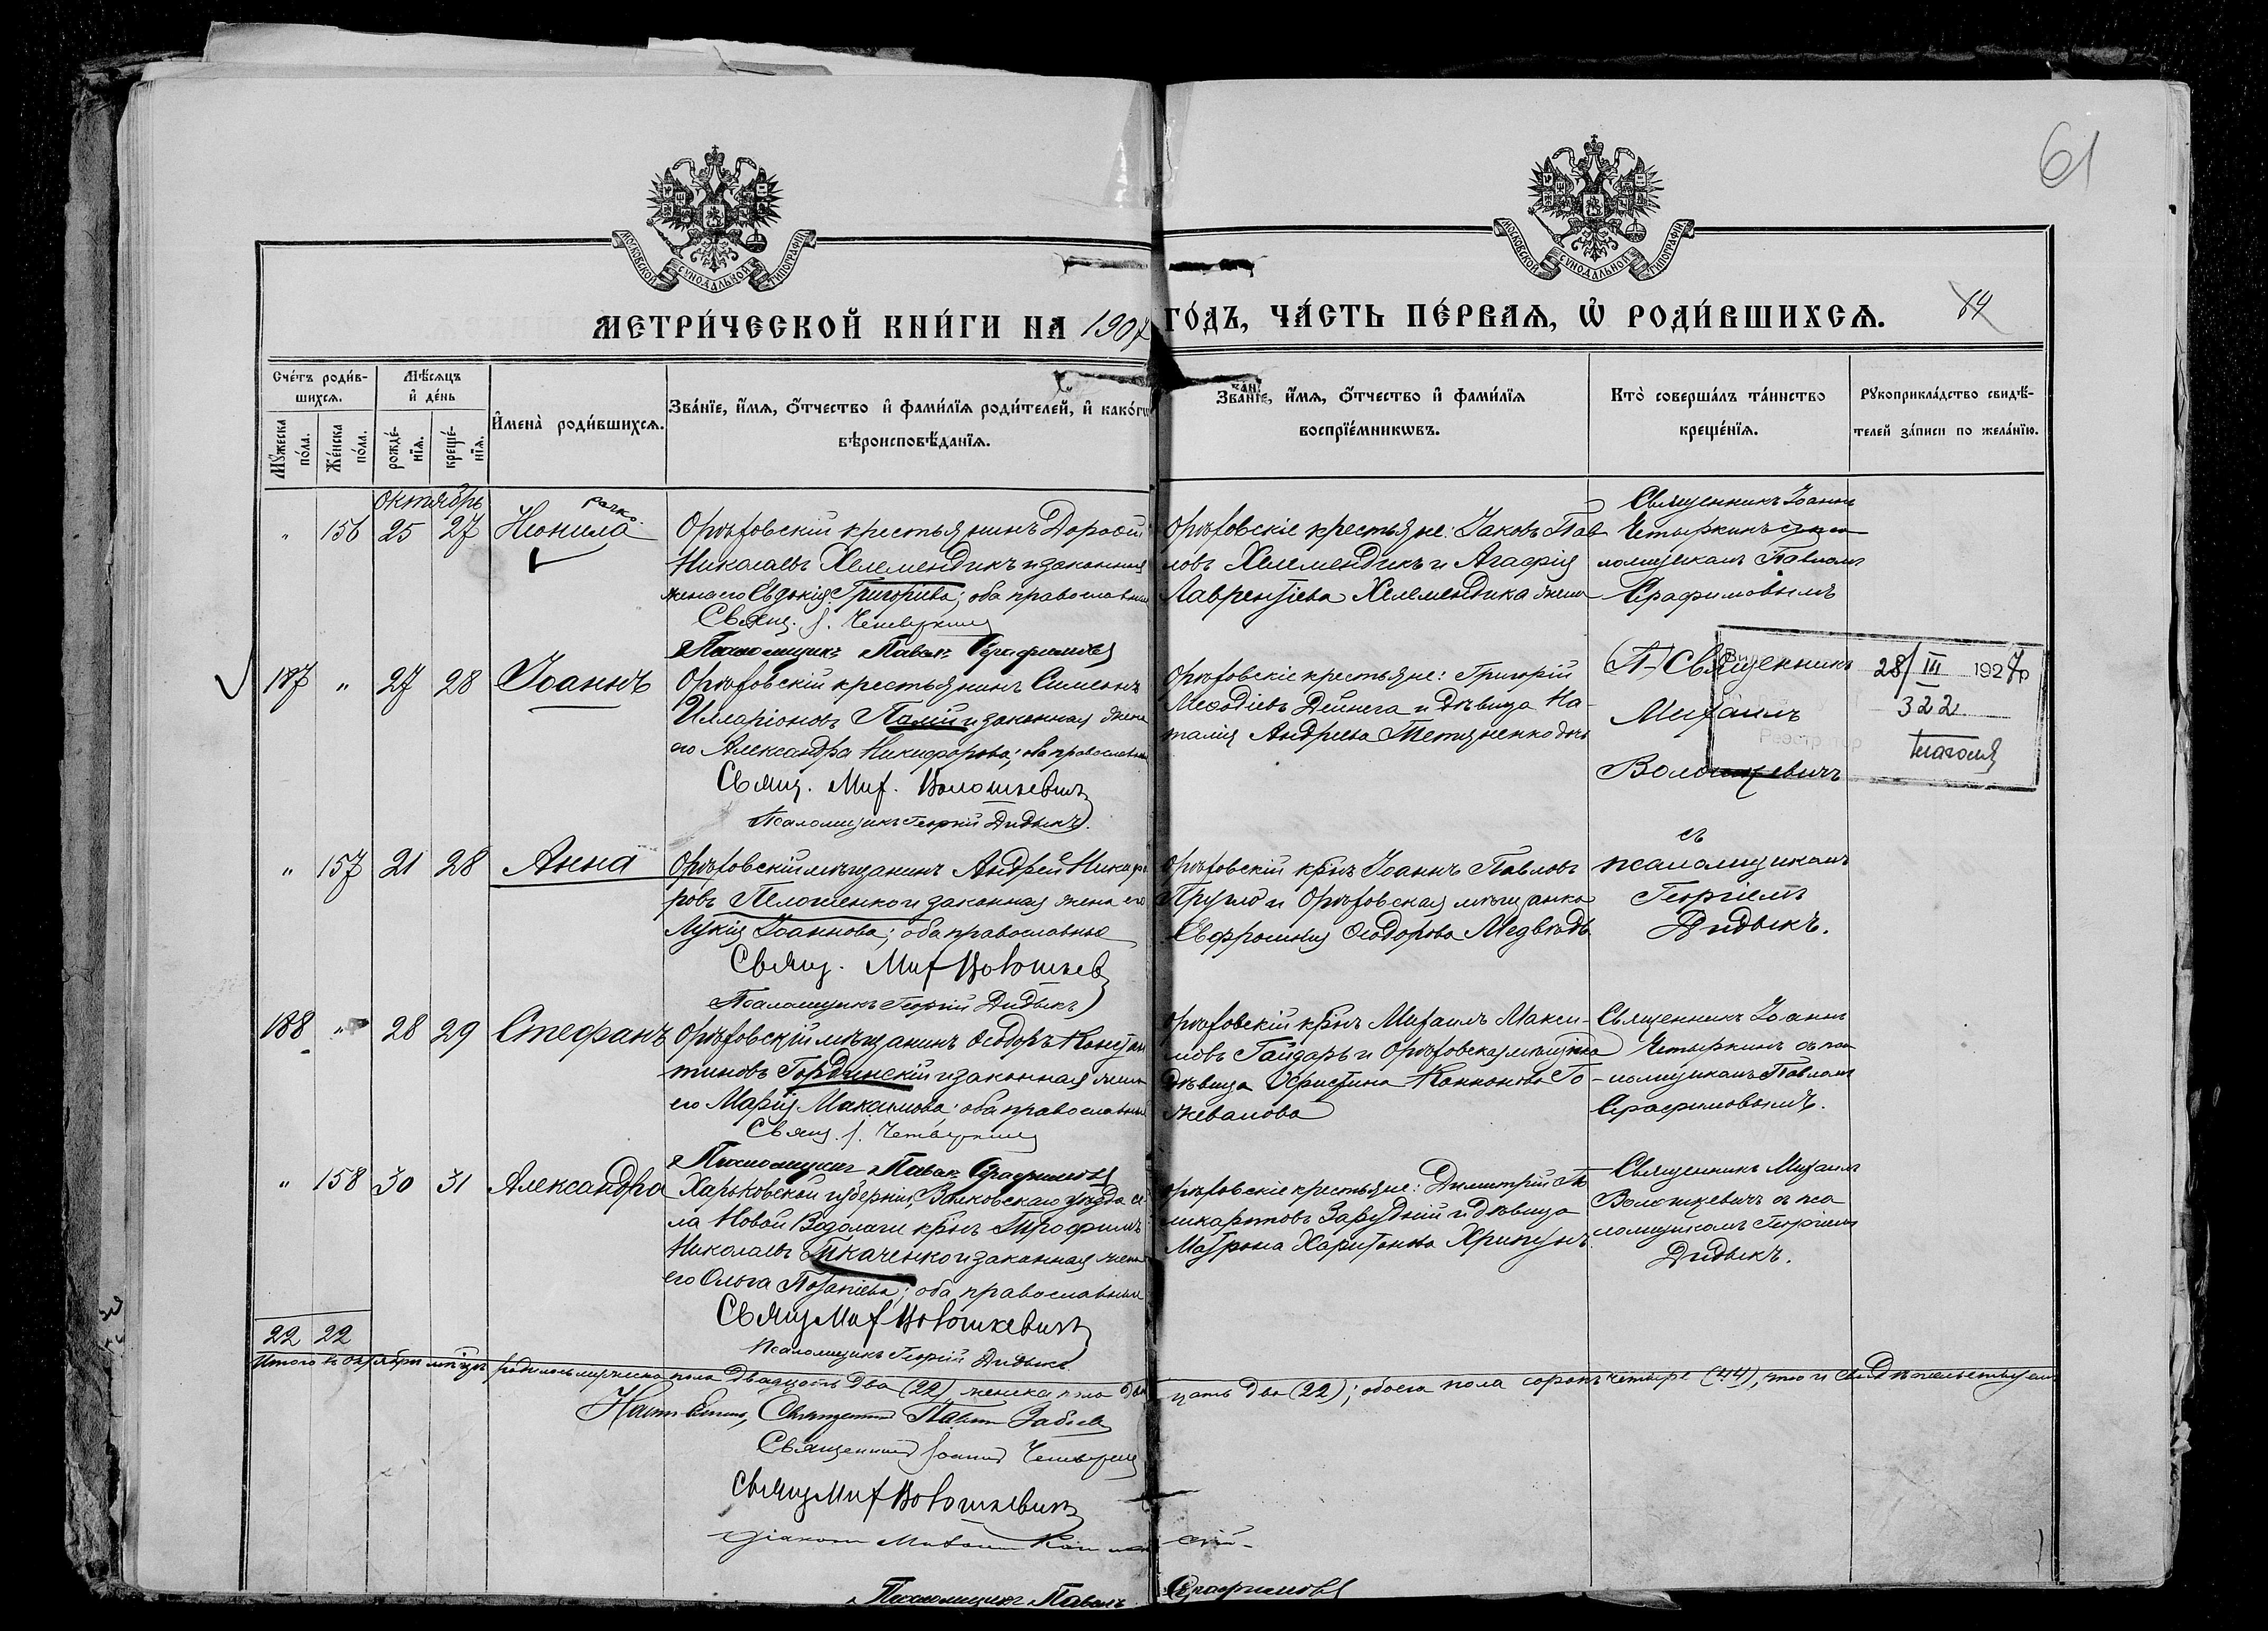 61
МОСКОВСКОЙ СУНОДАЛЬНОЙ ТИПОГРАФІИ
МОСКОВСКОЙ СУНОДАЛЬНОЙ ТИПОГРАФІИ
МЕТРИ́ЧЕСКОЙ КНИ́ГИ НА 1907 ГО́ДЪ, ЧА́СТЬ ПЕ́РВАѦ, Ѡ҆ РОДИ́ВШИХСѦ.
Сче́тъ роди́в-
шихсѧ.
Мѣ́сѧцъ
и҆ де́нь
И҆мена̀ роди́вшихсѧ.
Зва́нїе, и҆́мѧ, ѻ҆́тчество и҆ фами́лїѧ роди́телей, и҆ како́гѡ
вѣроисповѣ́данїѧ.
Зва́нїе, и҆́мѧ, ѻ҆́тчество и҆ фами́лїѧ
воспрїе́мникѡвъ.
Кто̀ соверша́лъ та́инство
креще́нїѧ.
Рꙋкоприкла́дство свидѣ́-
телей за́писи по жела́нїю.
Мꙋ́жеска по́ла.
Же́нска по́ла.
рожде́-нїѧ.
креще́-нїѧ.
Октябрь
" 156 25 27 Неонила
Орѣховскій крестьянинъ Дороѳей
Николаевъ Хелемендикъ и законная
жена его Евдокія Григоріева; оба православные
Свящ. І. Четыркинъ
Псаломщикъ Павелъ Серафимовъ
Орѣховскіе крестьяне: Іаковъ Пав
ловъ Хелемендикъ и Агафія
Лаврентіева Хелемендика жена
Священникъ Іоаннъ
Четыркинъ съ пса
ломщикомъ Павломъ
Серафимовымъ
187 " 27 28 Іоаннъ
Орѣховскій крестьянинъ Симеонъ
Илларіоновъ Палій и законная жена
его Александра Никифорова; оба православные
Свящ. Мих. Волошкевичъ
Псаломщикъ Георгій Дидыкъ
Орѣховскіе крестьяне: Григорій
Меѳодіевъ Дейнега и дѣвица На-
талія Андреева Тетяненко дочь
Священникъ
Михаилъ
Волошкевичъ
28/III 1927р
322
" 157 21 28 Анна
Орѣховскій мѣщанинъ Андрей Никифо
ровъ Пелошенко и законная жена его
Лукія Іоаннова; оба православные
Свящ. Мих Волошкев
Псаломщикъ Георгій Дидыкъ
Орѣховскій крнъ Іоаннъ Павловъ
Пругло и Орѣховская мѣщанка
Евфросинія Ѳеодорова Медвѣдь
съ
псаломщикомъ
Георгіемъ
Дидыкъ.
188 " 28 29 Стефанъ
Орѣховскій мѣщанинъ Ѳеодоръ Констан
тиновъ Гординскій и законная жена
его Марія Максимова; оба православные
Свящ. І. Четыркинъ
Псаломщикъ Павелъ Серафимовъ
Орѣховскій крнъ Михаилъ Макси-
мовъ Гайдаръ и Орѣховская мѣщанка
дѣвица Христина Кононова Го-
жевалова
Священникъ Іоаннъ
Четыркинъ съ пса
ломщикомъ Павломъ
Серафимовымъ.
" 158 30 31 Александра
Харьковской губерніи, Валковскаго уѣзда се
ла Новой Водолаги крнъ Трофимъ
Николаевъ Ткаченко и законная жена
его Ольга Потапіева; оба православные
Свящ Мих Волошкевичъ
Псаломщикъ Георгій Дидыкъ
Орѣховскіе крестьяне: Димитрій По
ликарповъ Зарудній и дѣвица
Матрона Харитонова Хрипунъ
Священникъ Михаилъ
Волошкевичъ съ пса
ломщикомъ Георгіемъ
Дидыкъ.
22 22
Итого въ Октябрѣ мѣсяцѣ родилось мужеска пола двадцать два (22), женска пола двад цать два (22); обоего пола сорокъ четыре (44), что и свидѣтельствуемъ
Священникъ Павелъ
Священникъ Іоаннъ Четыркинъ
Свящ Мих Волошкевичъ
Псаломщикъ Павелъ Серафимовъ